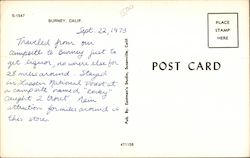 S-1547
BURNEY, CALIF.
500
Sept. 22, 1973
Traveled from our
campsite to Burney just to
get liquor, no where else for
28 miles around. Stayed
in Lassen National Forest at
a campsite named "
caught 2 trout. Main
attraction for miles around is
this store.
Pub. By Eastman's Studio, Susanville, Calif.
471158
POST CARD
PLACE
STAMP
HERE